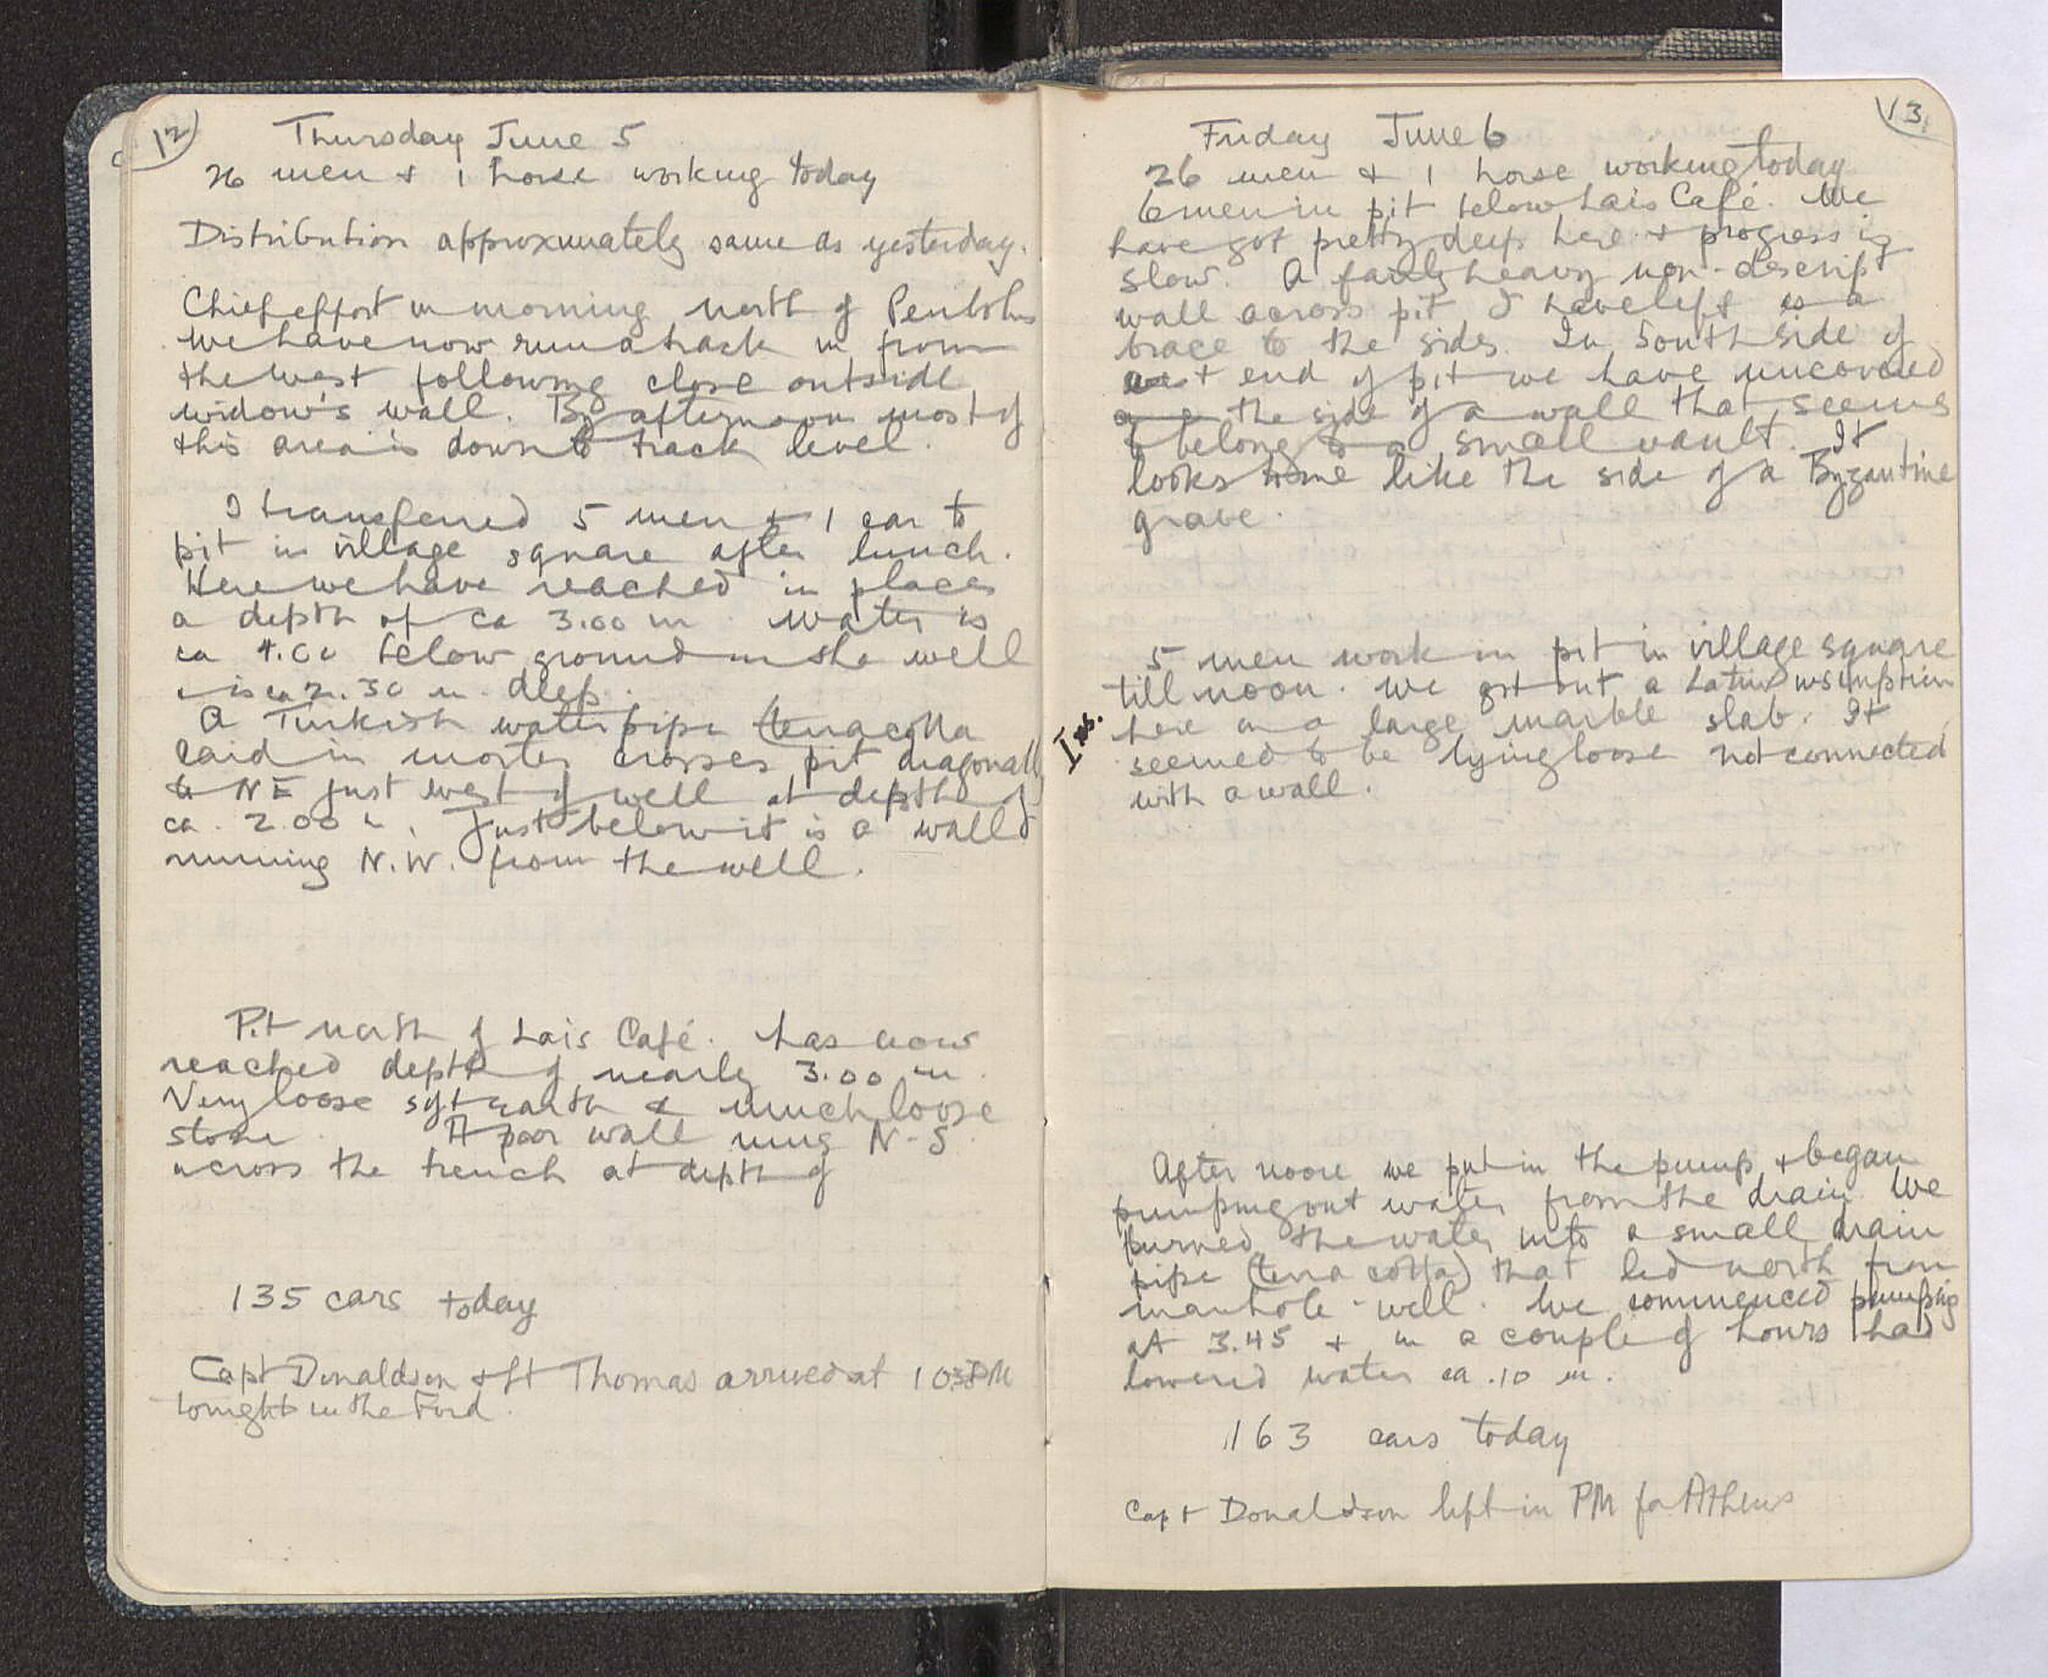 12
Thursday June 5
26 men & 1 horse working today
Distribution approximately same as yesterday.
Chief effort in morning north of
We have now run a track in from
the west following close outside
widow's wall. By afternoon most of
this area is down to track level.
I transferred 5 men & 1 car to
pit in village square after lunch.
Here we have reached in places
a depth of ca 3.00 m. Water is
ca 4.00 below ground in the well
& is ca 2.30 m. deep.
A Turkish water pipe (terracotta
laid in mortar crosses pit diagonally
to NE just west of well at depth of
ca. 2.00 m. Just below it is a wall
running N.W. from the well.
Pit north of Lais Café. has now
reached depth of nearly 3.00 m.
Very loose soft earth & much loose
stone. A poor wall runs N-S
across the trench at depth of
135 cars today
Capt Donaldson & Lt Thomas arrived at 10 PM
tonight in the Ford.
13
Friday June 6
26 men & 1 horse working today
6 men in pit below Lais Café. We
have got pretty deep here & progress is
slow. A fairly heavy non-descript
wall across pit I have left as a
brace to the sides. In South side of
west end of pit we have uncovered
the side of a wall that seems
to belong to a small vault. It
looks some like the side of a Byzantine
grave.
5 men work in pit in village square
till noon. We got out a Latin inscription
Ins. here on a large marble slab. It
seemed to be lying loose not connected
with a wall.
After noon we put in the pump & began
pumping out water from the drain. We
turned the water into a small drain
pipe (terra cotta) that led north from
manhole-well. We commenced pumping
at 3.45 & in a couple of hours had
lowered water ca .10 m.
163 cars today
Capt Donaldson left in PM for Athens